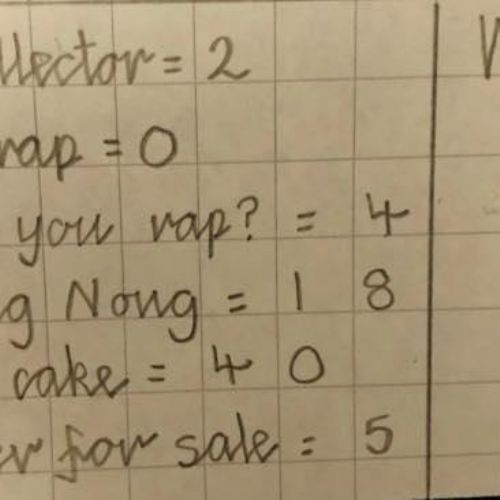 llector = 2
rap = 0
you rap? = 4
g Nong = 1 8
cake = 4 0
er for sale = 5